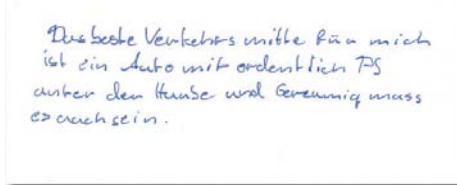 Das beste Verkehrs mitte für mich
ist ein Auto mit ordentlich PS
unter der Haube und Gereumig muss
es auch sein.